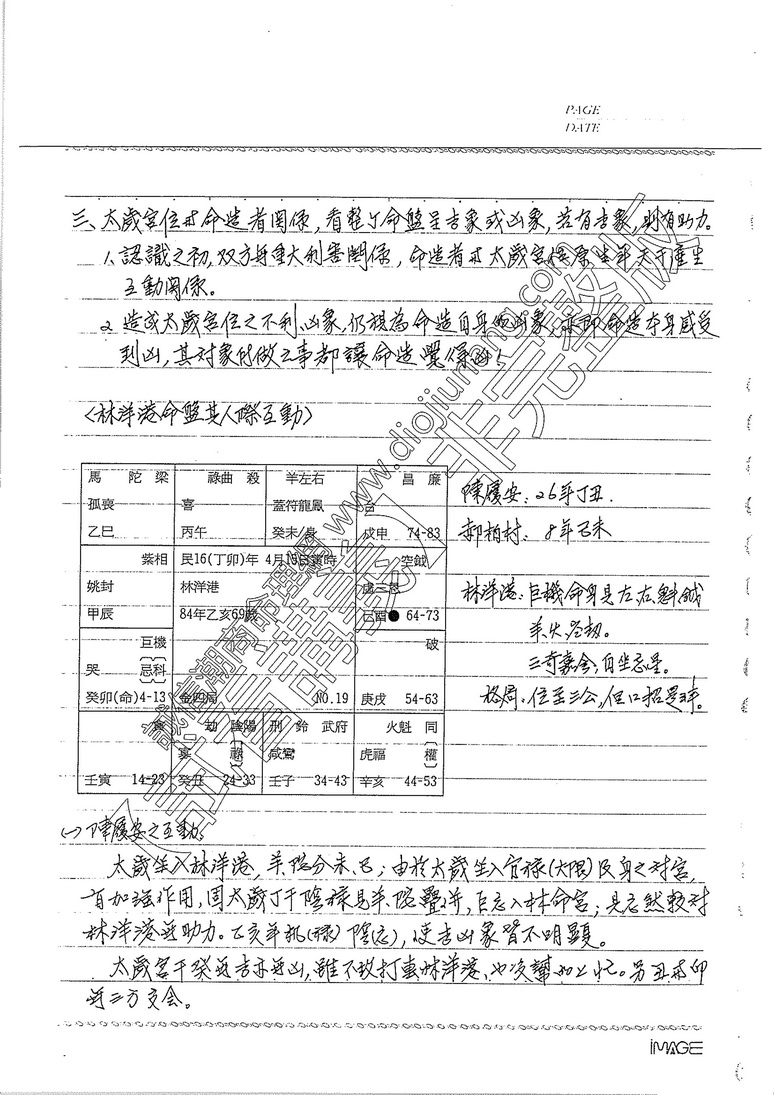 PAGE
DATE
三、太歲宮位与命造者関係,看整个命盤呈吉象或凶象,若有吉象,則有助力。
1.認識之初,双方毋重大利害関係,命造者与太歲宮僅原生年天干產生
互動関係。
2.造成太歲宮位之不利、凶象,仍視為命造自身的凶象,亦即命造本身感受
到凶,其对象所做之事都讓命造覺得凶!
〈林洋港命盤其人際互動〉
馬 陀 梁 祿曲 殺 羊左右 昌 廉
孤喪 喜 蓋符龍鳳
乙巳 丙午 癸未/身 戊申 74-83
陳履安:26年丁丑.
郝柏村: 8年己未
紫相 民16(丁卯)年 4月15日寅時 空鉞
姚封 林洋港 虛三恩
甲辰 84年乙亥69歲 己酉● 64-73
林洋港:巨機命身具左右魁鉞
羊火
三奇嘉会,自坐忌星。
格局:位至三公,但口招是非。
巨機 破
哭 忌科
癸卯(命)4-13 金四局 NO.19 庚戌 54-63
貪 劫 陰陽 刑 鈴 武府 火魁 同
寡 祿 咸鸞 虎福 權
壬寅 14-23 癸丑 24-33 壬子 34-43 辛亥 44-53
(一)陳履安之互動:
太歲坐入林洋港,羊陀分未、巳;由於太歲坐入官祿(大限)及身之对宮,
有加強作用,因太歲丁干陰祿見羊、陀疊併,巨忌入林命宮;是忌然較对
林洋港無助力。乙亥年機(祿)陰(忌),使吉凶象皆不明顯。
太歲宮干癸無吉亦無凶,雖不致打擊林洋港、也沒幫 上忙。另丑与卯
無三方交会。
iMAGE
www.diojiuning.com
非完整版